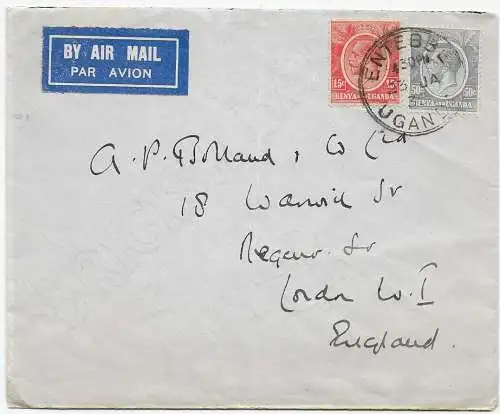 BY AIR MAIL
PAR AVION
15c 15c
KENYA AND UGANDA
50c 50c
KENYA AND UGANDA
ENTEBBE
UGANDA
A.P. & Co Ltd
18 Warwick St
Regent St
London W.I
England.